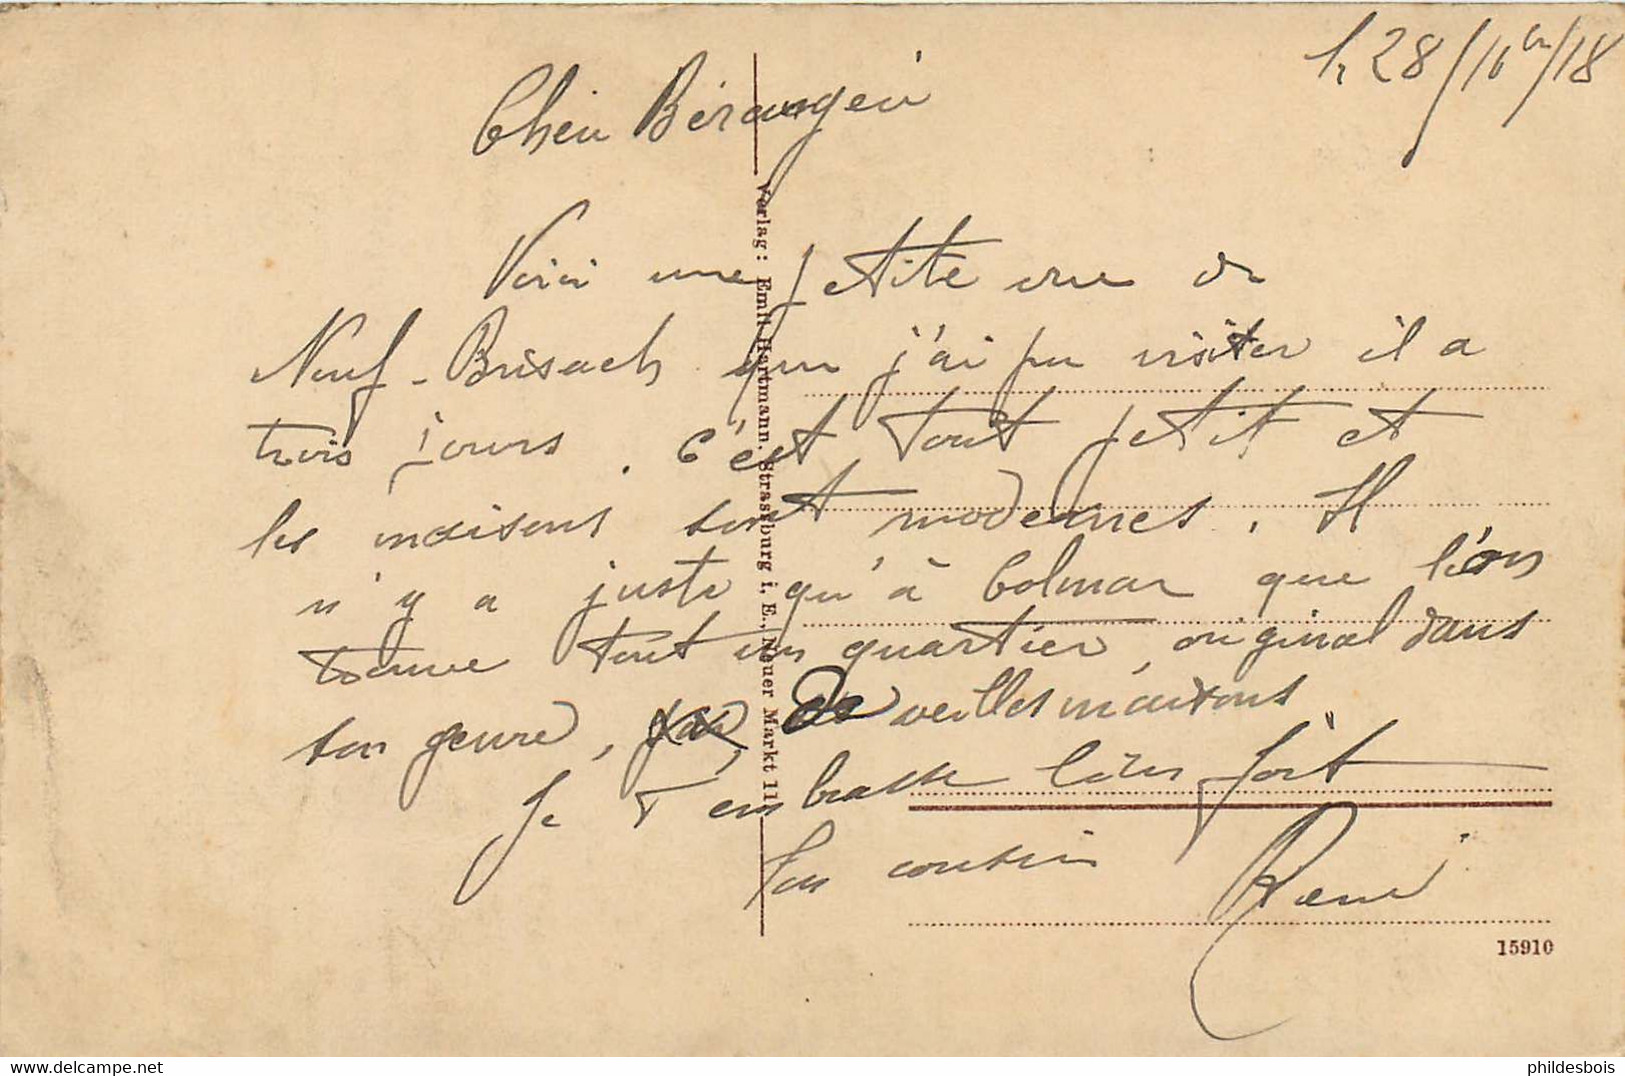 28/11/18
Cher Béranger
Voici une petite vue de
Neuf-Brisach que j'ai pu visiter il a
trois jours. C'est tout petit et
les maisons sont modernes. Il
n'y a juste qu'à Colmar que l'on
trouve tout un quartier, original dans
son genre, de vieilles maisons
Je t'embrasse bien fort
Ton cousin
René
Verlag: Emil Hartmann, Strassburg i. E., Neuer Markt 11
15910
phildesbois
delcampe.net